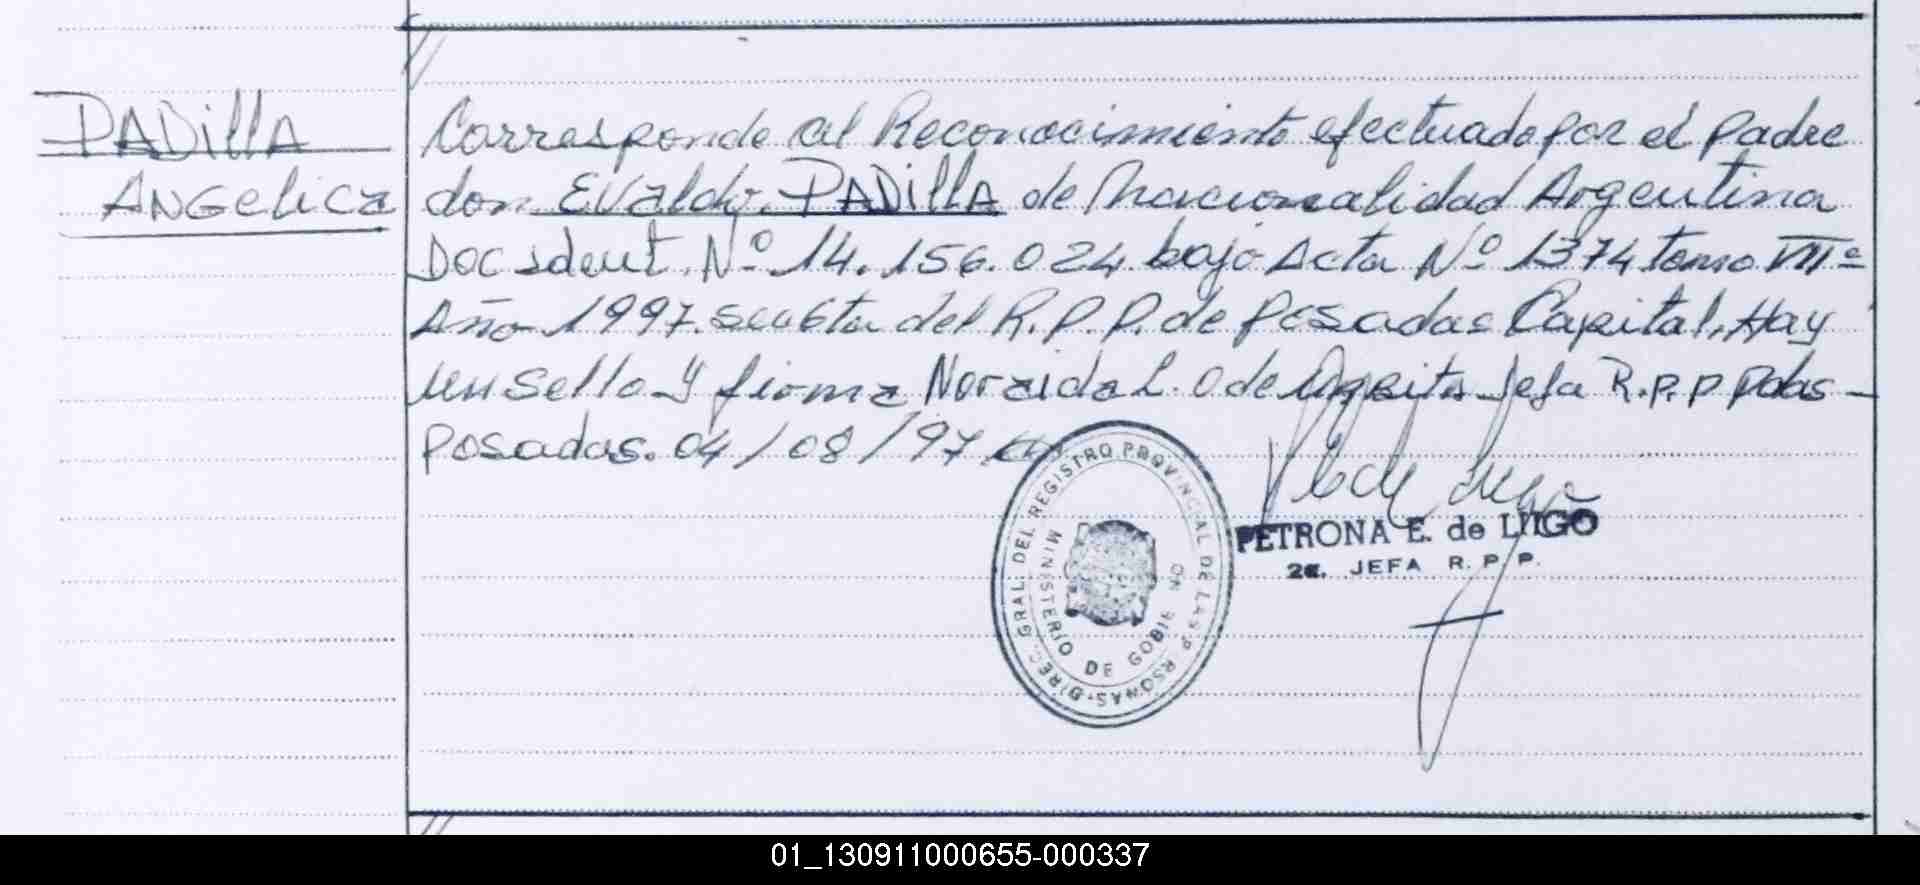 PADILLA
ANGELICA
Corresponde al Reconocimiento efectuado por el padre
don Evaldo PADILLA de Nacionalidad Argentina
Doc ident. Nº 14.156.024 bajo Acta Nº 1374 tomo VIIº
Año 1997. del R.P.P. de Posadas Capital, Hay
un sello y firma Noraida L. O de Jefa R.P.P Pdas -
Posadas. 04/08/97
DIREC. GRAL. DEL REGISTRO PROVINCIAL DE LAS P RSONAS
MINISTERIO DE GOBIE NO
PETRONA E. de LUGO
2a. JEFA R. P. P.
01_130911000655-000337